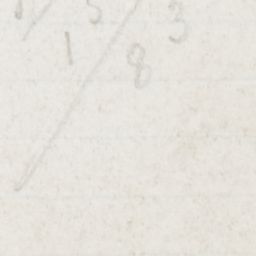 5 3
1 8